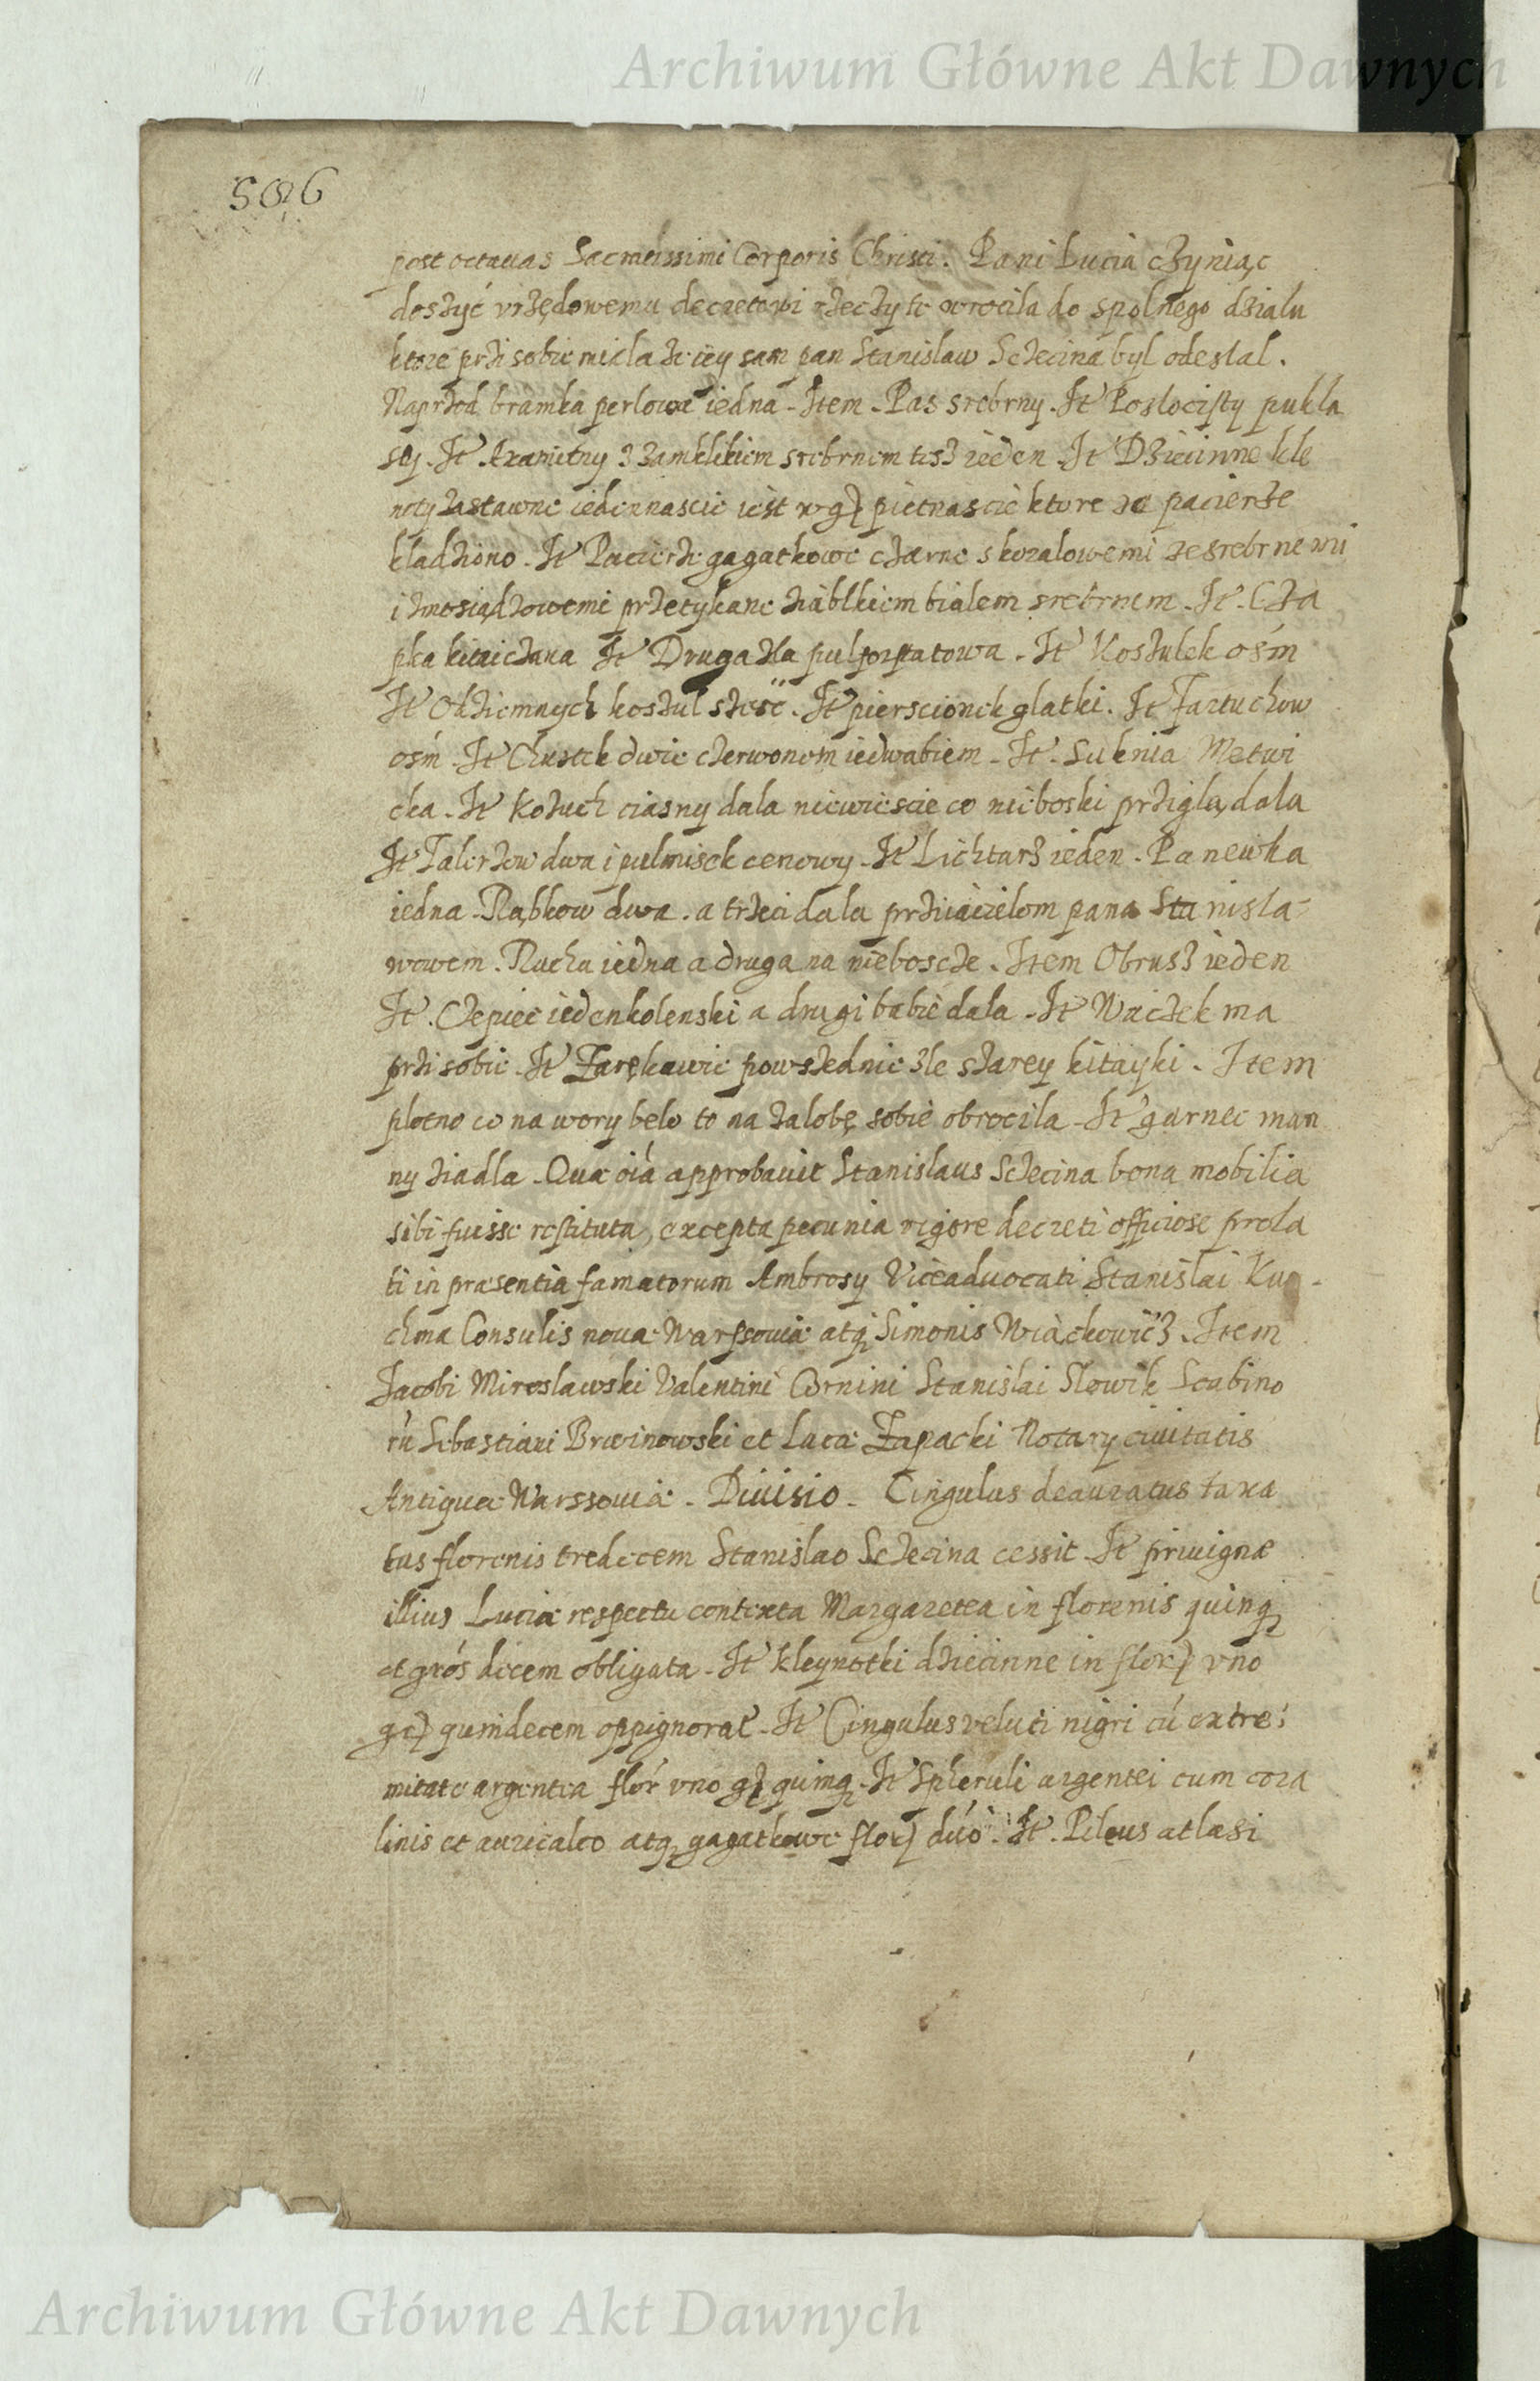 Archiwum Główne Akt Dawnych
506
post octauas Sacratissimi Corporis Christi. Pani Lucia cżyniąc
dosżyć vrżędowemu decretowi rżecży te wrocila do spolnego dżialu
ktore prżi sobie miala że iey sam pan Stanislaw Scżecina byl odeslal.
Naprżod bramka perlowa iedna - Item - Pas srebrny. It Poslocisty pukla
sty. It Axamitny z zamklikiem srebrnem tesz ieden. It Dziecinne kle
noty żastawne iedennascie iest w gł pietnascie ktore za pacierże
kladżiono. It Pacierże gagatkowe cżarne s koralowemi ze srebrnemi
i żmosiądżowemi prżetykane żiablkiem bialem srebrnem. It. Cża
pka kitaicżana It Druga żla pulporpatowa. It Kosżulek ośm
It Odżiemnych kosżul sżesć. It pierscionek glatki. It Fartuchow
osm. It Chustek dwie cżerwonem iedwabiem - It. Suknia Metwi
cka. It Kożuch ciasny dala niewiescie co nieboski prżiglądala
It Talerżow dwa i pulmisek cenowy. It Lichtarz ieden. Panewka
iedna. Rąbkow dwa. a trżeci dala prżiiacielom pana Stanisla-
wowem. Rucha iedna a druga na niebosczże. Item Obrusz ieden
It. Cżepiec ieden kolenski a drugi babie dala. It Wacżek ma
prżi sobie. It Zarękawie powsżednie zle starey kitayki. Item
plotno co na wory belo to na żalobę sobie obrocila. It garnec man
ny żiadla. Quæ oĩa approbauit Stanislaus Scżecina bona mobilia
sibi fuisse restituta, excepta pecunia vigore decreti officiose prola
ti in præsentia famatorum Ambrosy Viceaduocati Stanislai Kuo-
chma Consulis nouæ Warssouiæ atq Simonis Wiackowicz. Item
Jacobi Miroslawski Valentini Cornini Stanislai Slowik Scabino
rũ Sebastiani Brwinowski et Lucæ Zapacki Notary ciuitatis
Antiquæ Warssouiæ - Diuisio - Cingulus deauratus taxa
tus florenis tredecem Stanislao Scżecina cessit. It priuignæ
illius Luciæ respectu contexta Margaretea in florenis quinq
et gros decem obligata. It kleynotki dżiecinne in flor vno
gr quindecem oppignorat. It Cingulus veluti nigri cũ extre-
mitate argentea flor vno gr quinq. It Spheruli argentei cum cora
linis et auricalco atq gagatkowe flor duo. It. Pileus atlasi
Archiwum Główne Akt Dawnych